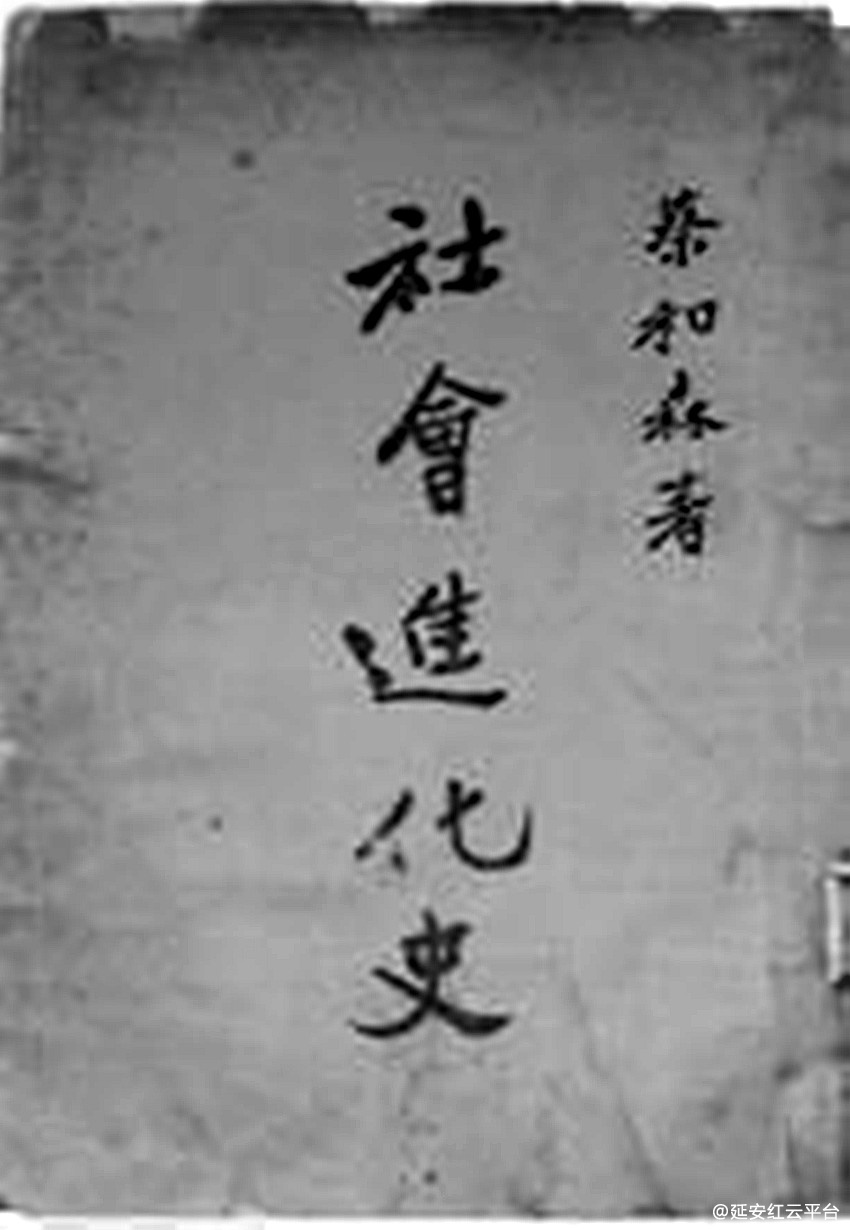 蔡和森著
社會進化史
@延安红云平台